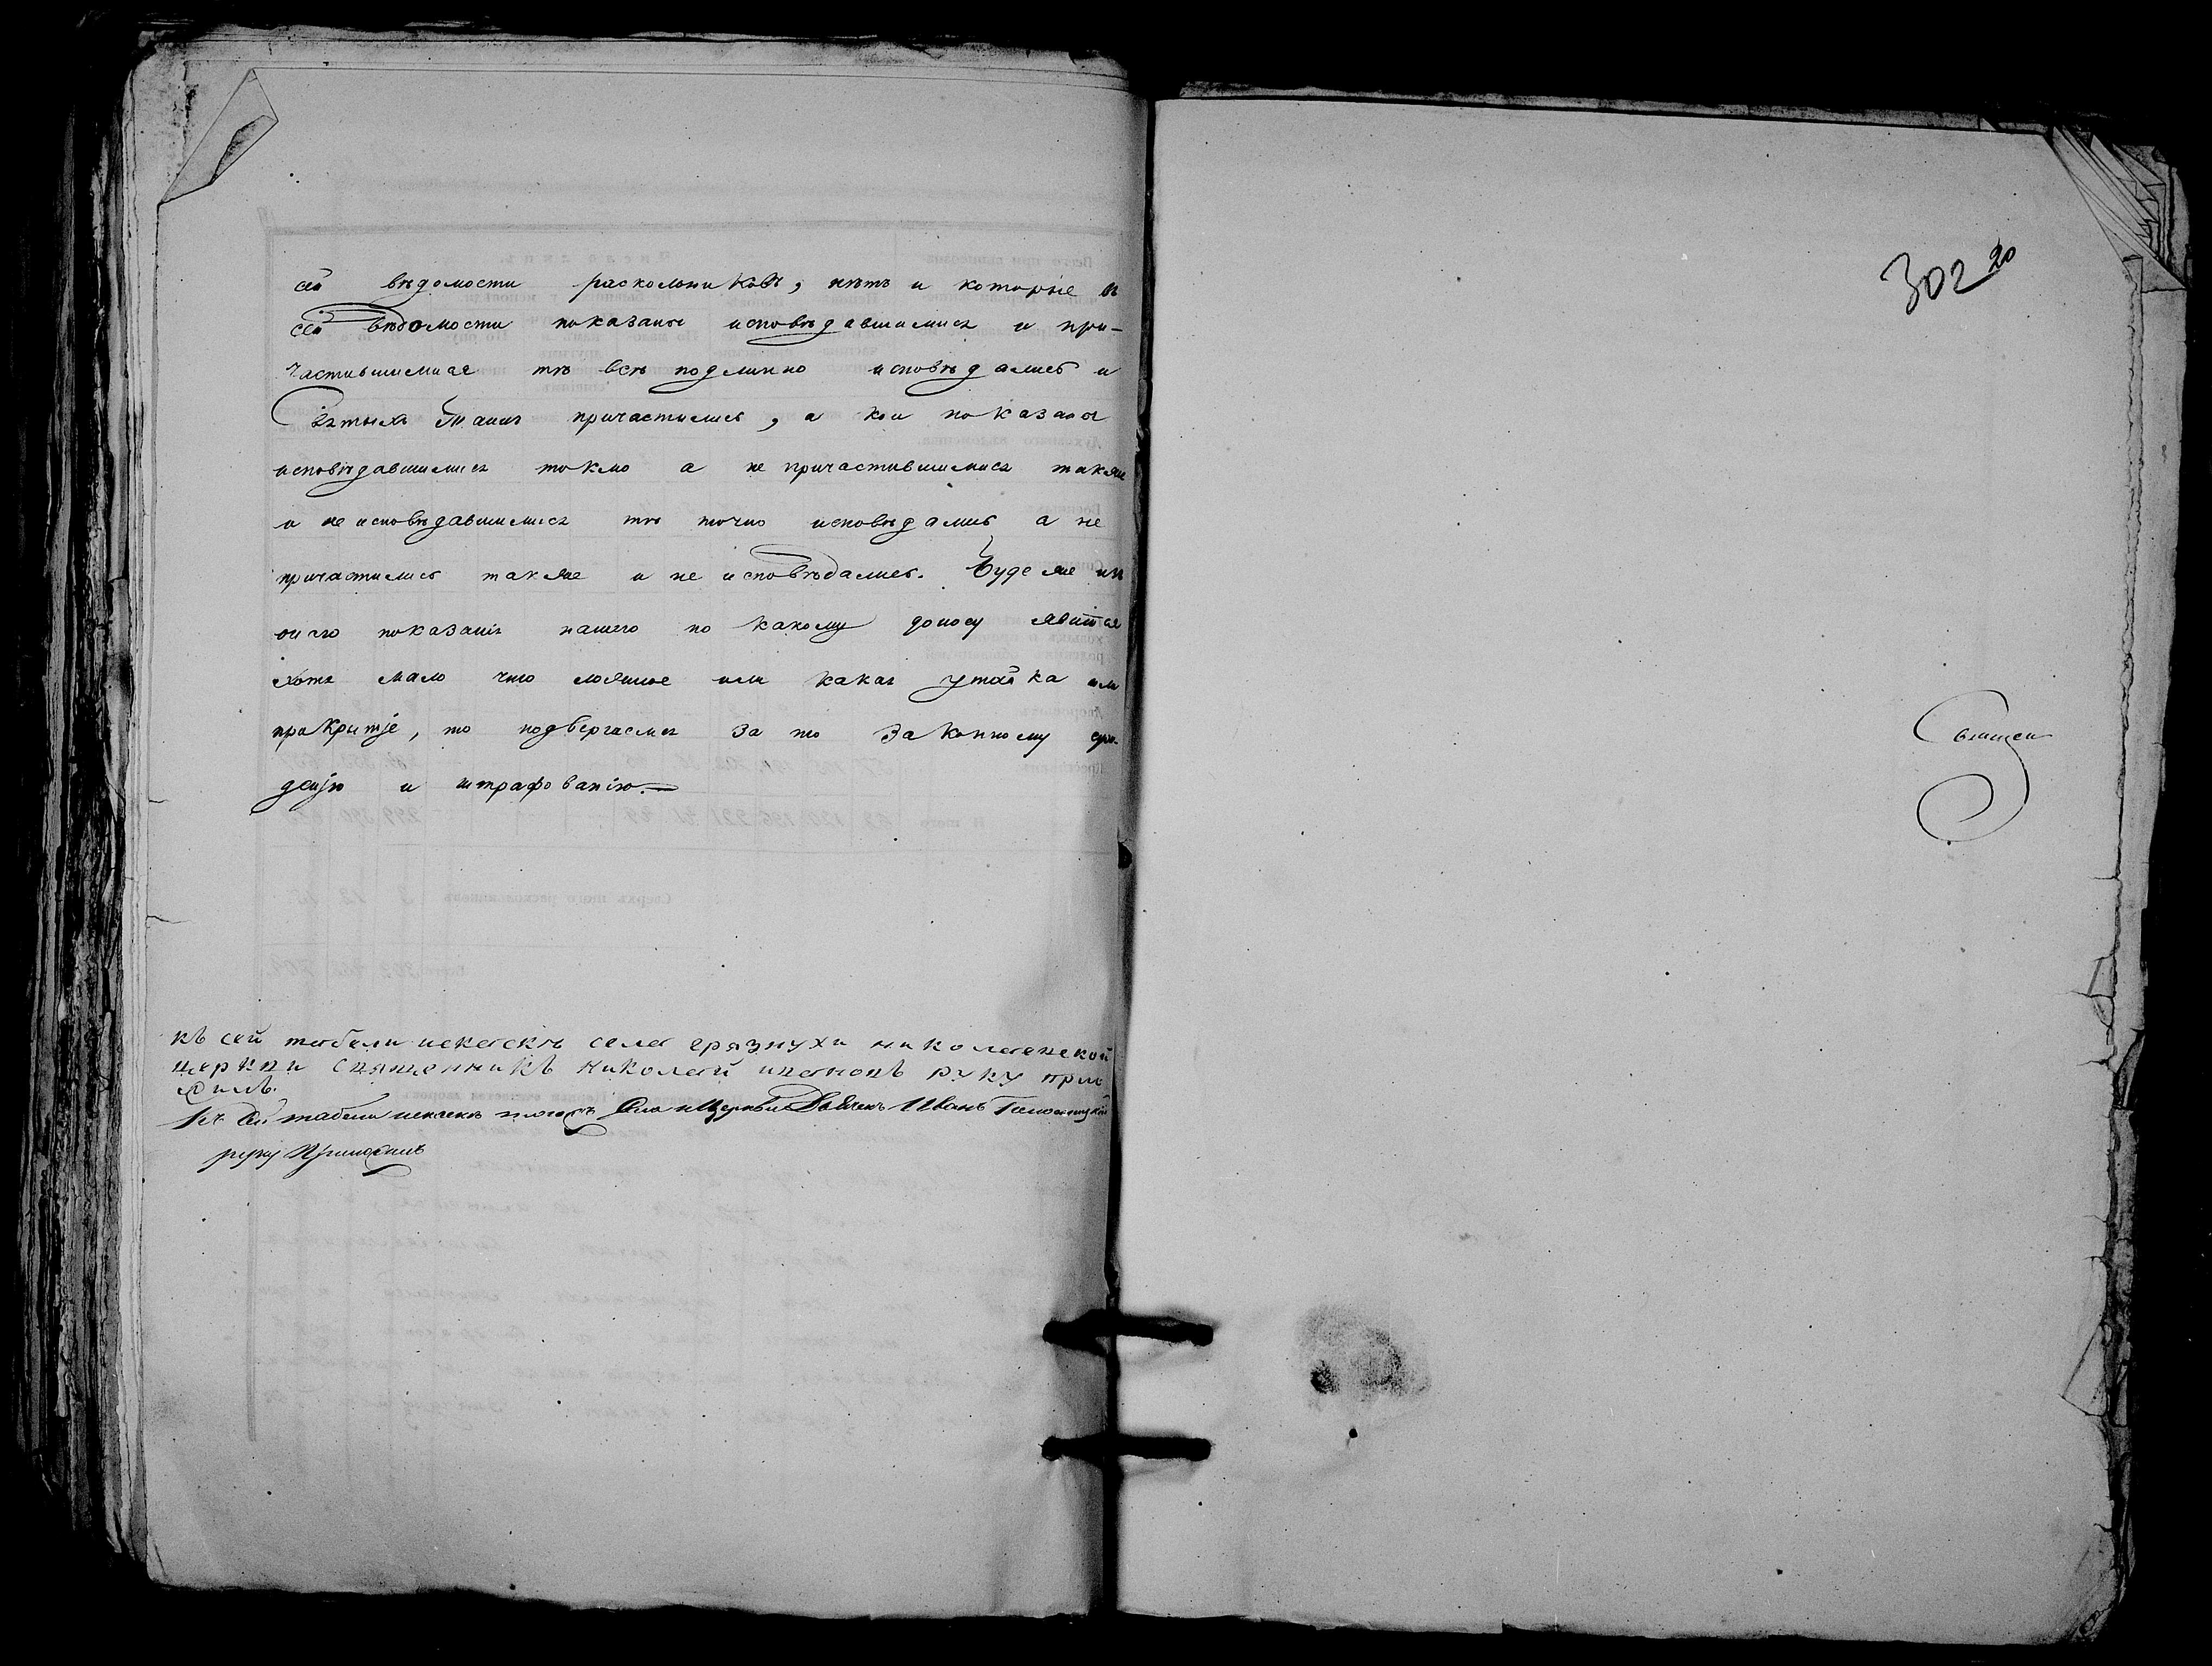 сей вѣдомости раскольниковъ, нѣтъ и которые въ
сей вѣдомости показаны исповѣдавшимися и при-
частившимися тѣ всѣ подлинно исповѣдались и
Святыхъ Таинъ причастились, а кои показаны
исповѣдавшимися токмо а не причастившимися также
и не исповѣдавшимися тѣ точно исповѣдались а не
причастились также и не исповѣдались. Буде же изъ
оного показанія нашего по какому доносу явится
хотя мало что ложное или какая утайка или
прикрытіе, то подвергаемся за то законному суж-
денію и штрафованію.
къ сей табели села грязнухи николаевской
церкви священникъ николай ивановъ руку прило
жилъ.
Къ сей табели тогожъ Села и Церкви Иванъ
руку Приложилъ
302 20